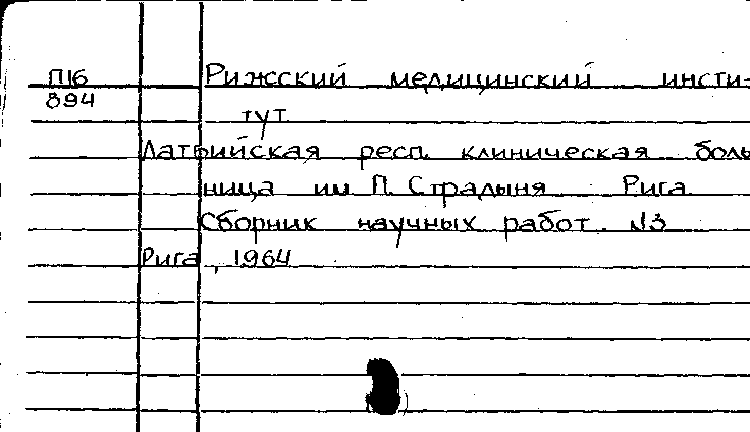 П16 Рижсский медицинский инсти-
894 тут
Латвийская респ. клиническая боль
ница им П. Страдыня Рига
Сборник научных работ. N3
Рига, 1964